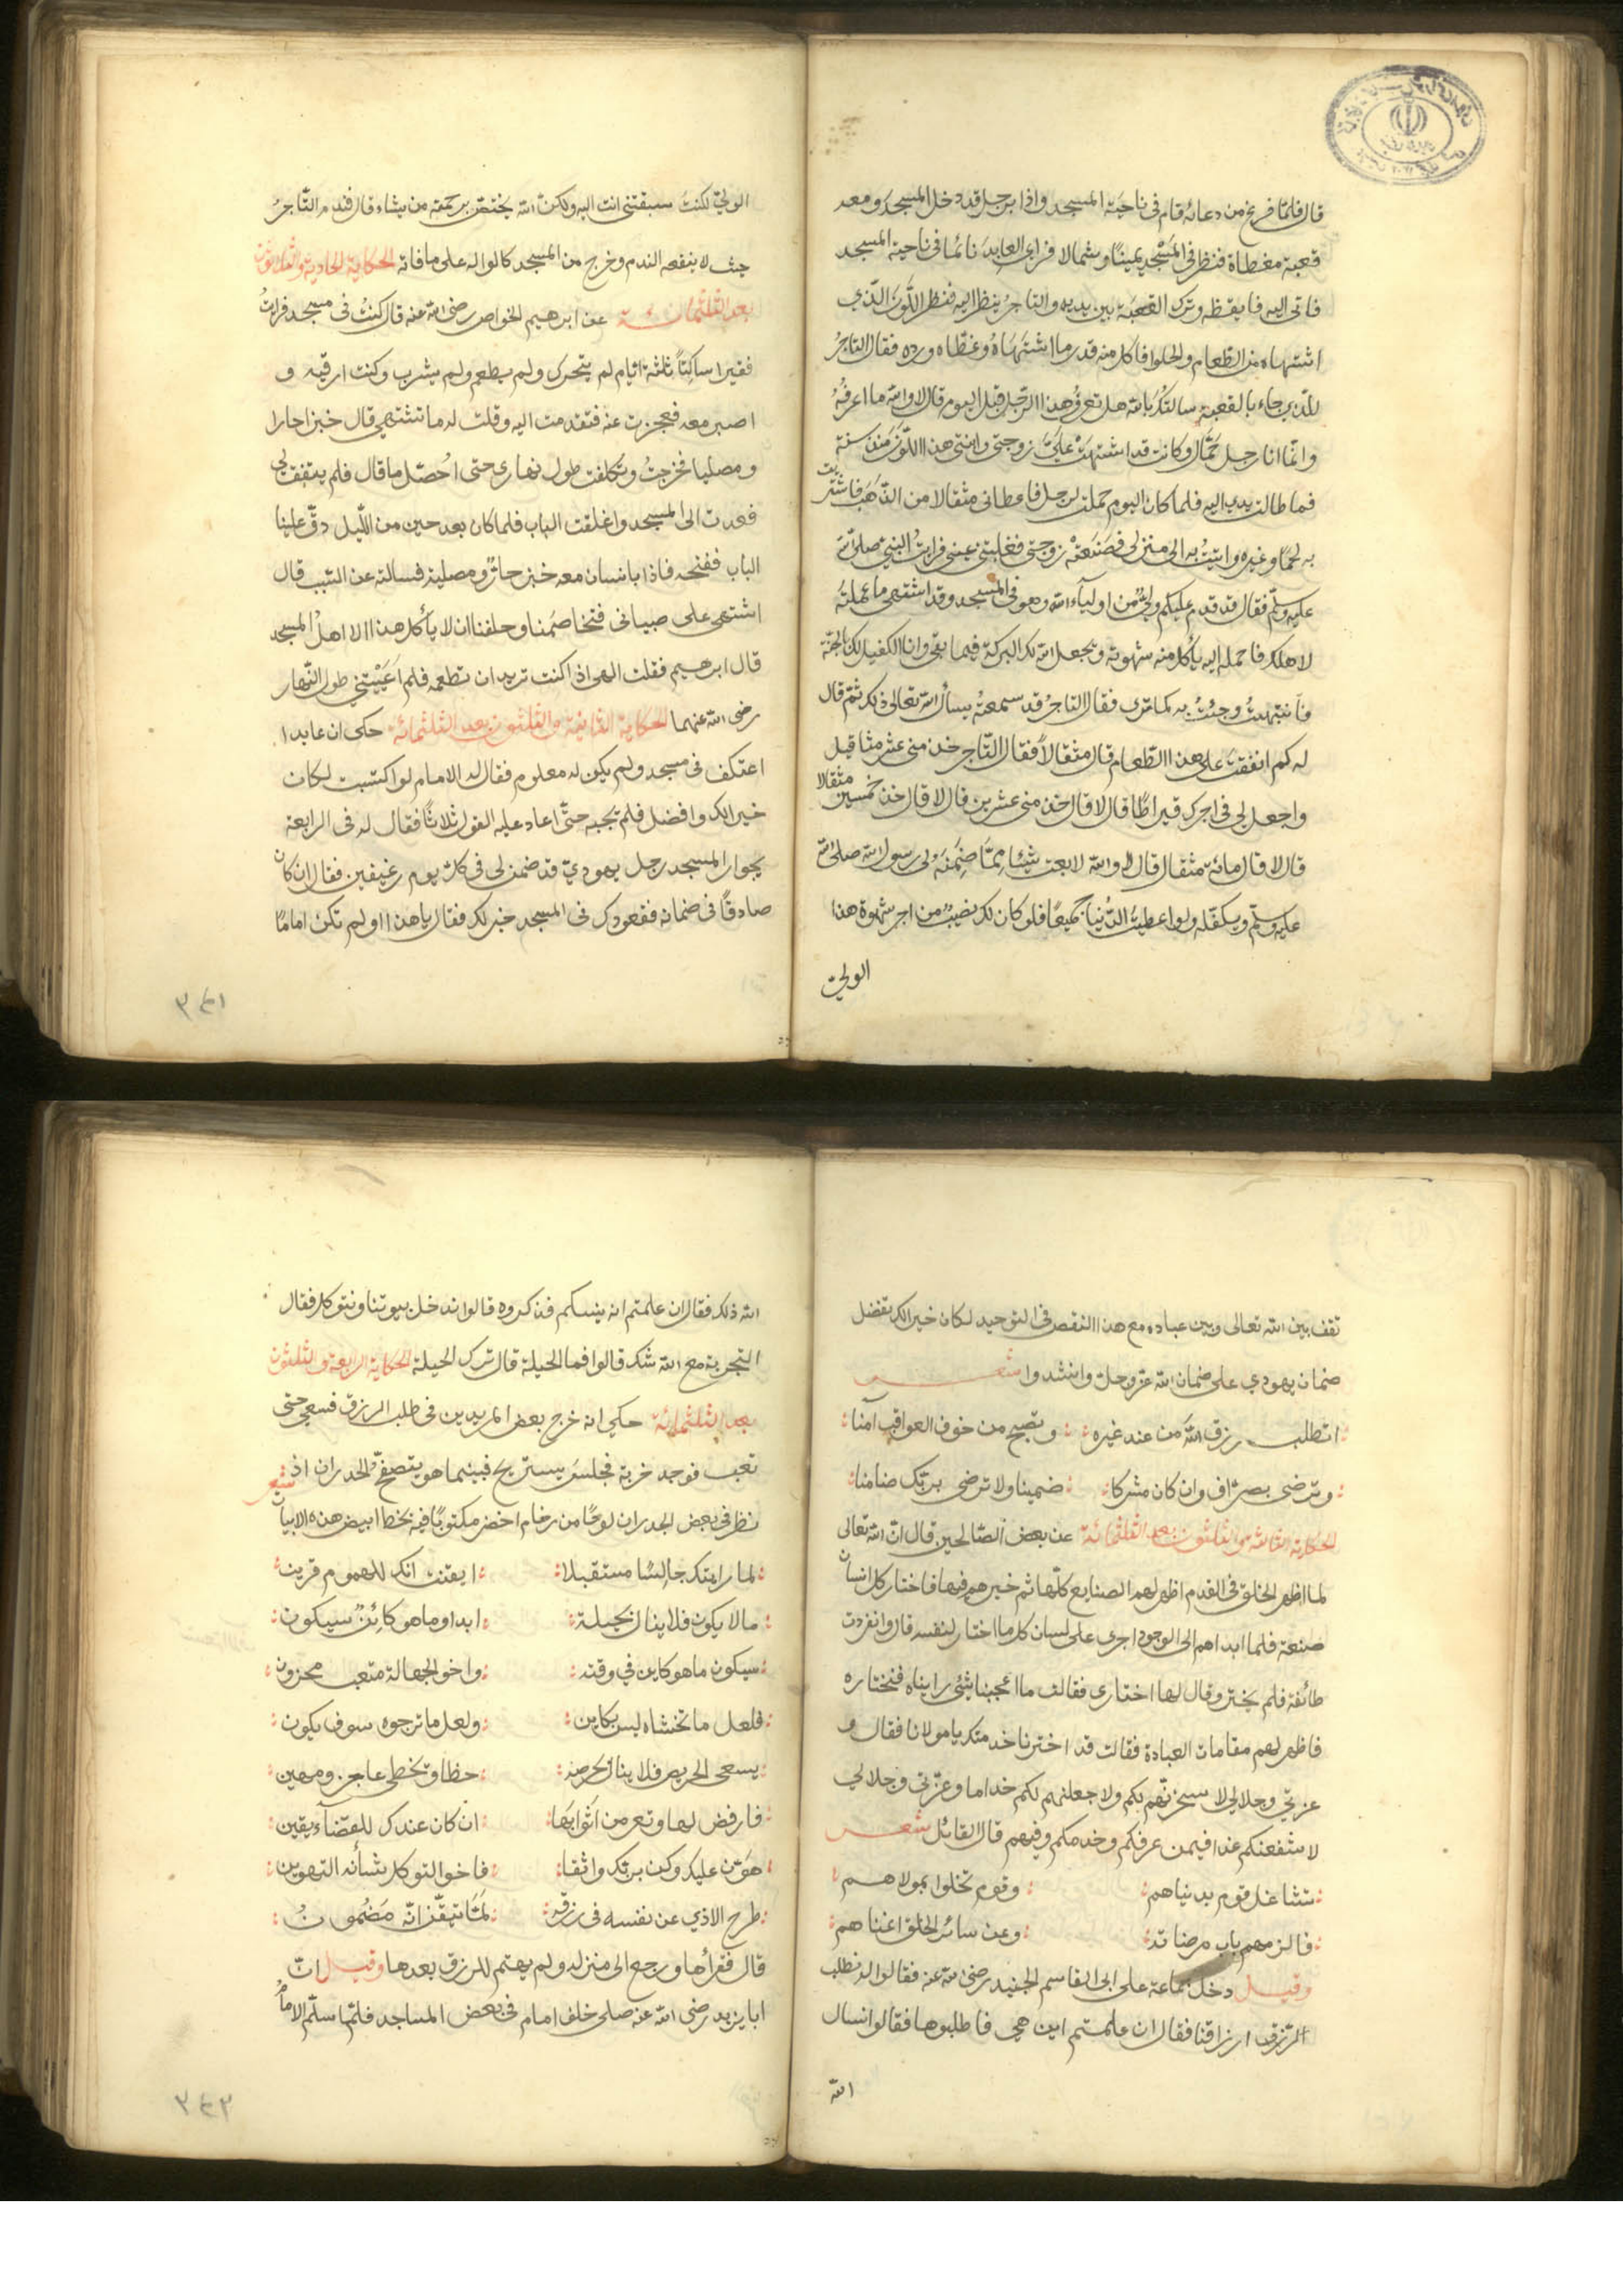 قال فلما فرغ من دعائه قام فى ناحية المسجد واذا برجل قد دخل المسجد ومعه
قعبة مغطاة فنظر فى المسجد يمينًا وشمالا فراى العابد نائما فى ناحية المسجد
فاتى اليه فايقظه وترك القعبة بين يديه والتاجر ينظر اليه فنظر اللون الذي
اشتهاه من الطعام والحلوا فاكل منه قدر ما اشتهاه وغطاه ورده فقال التاجر
للذي جاء بالقعبة سالتك بالله هل تعرف هذا الرجل قبل اليوم قال لا والله ما اعرفه
وانما انا رجل حمّال وكانت قد اشتهت علىّ زوجتى وابنتى هذا اللون منذ سنة
فما طالت يدى اليه فلما كان اليوم حملت لرجل فاعطانى مثقالا من الذهب فاشتريت
به لحمًا وغيره واتيت به الى منزلى فصنعته زوجتى فغلبتنى عينى فرايت النبى صلى الله
عليه وسلم فقال قد قدم عليكم ولىّ من اولياء الله وهو فى المسجد وقد اشتهى ما عملته
لاهلك فاحمله اليه ياكل منه شهوته ويجعل الله لك البركة فيما بقى وانا الكفيل لك بالجنة
فانتبهت وجئت به كما ترى فقال التاجر قد سمعته يسأل الله تعالى ذلك ثم قال
له كم انفقت على هذا الطعام قال مثقالا فقال التاجر خذ منى عشر مثاقيل
واجعل لى فى اجرك قيراطا قال لا قال خذ منى عشرين قال لا قال خذ خمسين مثقالا
قال لا قال مائة مثقال قال لا والله لابعت شيئا ممّا ضمنه لى رسول الله صلى الله
عليه وسلم ويكفله ولو اعطيت الدنيا جميعًا فلو كان لك نصيب من اجر شهوة هذا
الولىّ
الولىّ لكنت سبقتنى انت اليه ولكن الله يختص برحمته من يشاء قال فندم التاجر
حيث لا ينفعه الندم وخرج من المسجد كالواله على ما فاته الحكاية الحادية والثلاثون
بعد الثلثمائة عن ابرهيم الخواص رضى الله عنه قال كنت فى مسجد فرايت
فقيرا ساكتًا ثلثة ايام لم يتحرك ولم يطعم ولم يشرب وكنت ارقبه و
اصبر معه فعجزت عنه فتقدمت اليه وقلت له ما تشتهى قال خبزا حارا
ومصليا فخرجت وتكلفت طول نهارى حتى احصّل ما قال فلم يتفق لى
فعدت الى المسجد واغلقت الباب فلما كان بعد حين من الليل دقّ علينا
الباب ففتحه فاذا بانسان معه خبز حارّ ومصلية فسالته عن السبب قال
اشتهى على صبيانى فتخاصمنا وحلفنا ان لا يأكل هذا الا اهل المسجد
قال ابرهيم فقلت الهى اذا كنت تريد ان تطعمه فلم اعييتنى طول النهار
رضى الله عنهما الحكاية الثانية والثلثون بعد الثلثمائة حكى ان عابدا
اعتكف فى مسجد ولم يكن له معلوم فقال له الامام لو اكتسبت لكان
خيرا لك وافضل فلم يجبه حتّى اعاد عليه القول ثلاثًا فقال له فى الرابعة
بجوار المسجد رجل يهودىّ قد ضمن لى فى كل يوم رغيفين فقال ان كان
صادقًا فى ضمانه فقعودك فى المسجد خير لك فقال يا هذا لو لم تكن امامًا
٣٤١
تقف بين الله تعالى وبين عباده مع هذا النقص فى التوحيد لكان خيرا لك تفضل
ضمان يهودي على ضمان الله عز وجل وانشدوا شعر
اتطلب رزق الله من عند غيره وتصبح من خوف العواقب آمنا
وترضى بصرّاف وان كان مشركا ضمينا ولا ترضى بربّك ضامنا
الحكاية الثالثة والثلثون بعد الثلثمائة عن بعض الصالحين قال ان الله تعالى
لما اظهر الخلق فى القدم اظهر لهم الصنايع كلّها ثم خيرهم فيها فاختار كل انسان
صنعة فلما ابداهم الى الوجود اجرى على لسان كل ما اختار لنفسه قال وانفردت
طائفة فلم يختر وقال لها اختارى فقالت ما اعجبنا شئ رايناه فنختاره
فاظهر لهم مقامات العبادة فقالت قد اخترنا خدمتك يا مولانا فقال و
عزتي وجلالي لا سخرنّهم بكم ولاجعلنهم لكم خداما وعزتى وجلالي
لاشفعنكم غدا فيمن عرفكم وخدمكم وفيهم قال القائل شعر
تشاغل قوم بدنياهم وقوم تخلوا بمولاهم
فالزمهم باب مرضاته وعن سائر الخلق اغناهم
وقيل دخل جماعة على ابى القاسم الجنيد رضى الله عنه فقالوا له نطلب
الرزق ارزاقنا فقال ان علمتم اين هى فاطلبوها فقالوا نسال
الله
الله ذلك فقال ان علمتم انه ينساكم فذكروه قالوا ندخل بيوتنا ونتوكل فقال
التجربة مع الله شك قالوا فما الحيلة قال ترك الحيلة الحكاية الرابعة والثلثون
بعد الثلثمائة حكى انه خرج بعض المريدين فى طلب الرزق فسعى حتى
تعب فوجد خربة فجلس يستريح فبينما هو يتصفح الجدران اذ
نظر فى بعض الجدران لوحًا من رخام اخضر مكتوبًا فيه بخط ابيض هذه الابيات شعر
لما رايتك جالسًا مستقبلا ايقنت انك للهموم قرين
ما لا يكون فلا ينال بحيلة ابدا وما هو كائن سيكون
سيكون ما هو كاين في وقته واخو الجهالة متعب محزون
فلعل ما تخشاه ليس بكاين ولعل ما ترجوه سوف يكون
يسعى الحريص فلا ينال بحرصه حظا ويحظى عاجز ومهين
فارفض لها وتعر من اثوابها ان كان عندك للقضاء يقين
هوّن عليك وكن بربك واثقا فاخو التوكل شأنه التهوين
طرح الاذي عن نفسه فى رزقه لمّا تيقّن انّه مضمون
قال فقرأها ورجع الى منزله ولم يهتم للرزق بعدها وقيل انّ
ابا يزيد رضى الله عنه صلى خلف امام فى بعض المساجد فلمّا سلّم الامام
٣٤٢